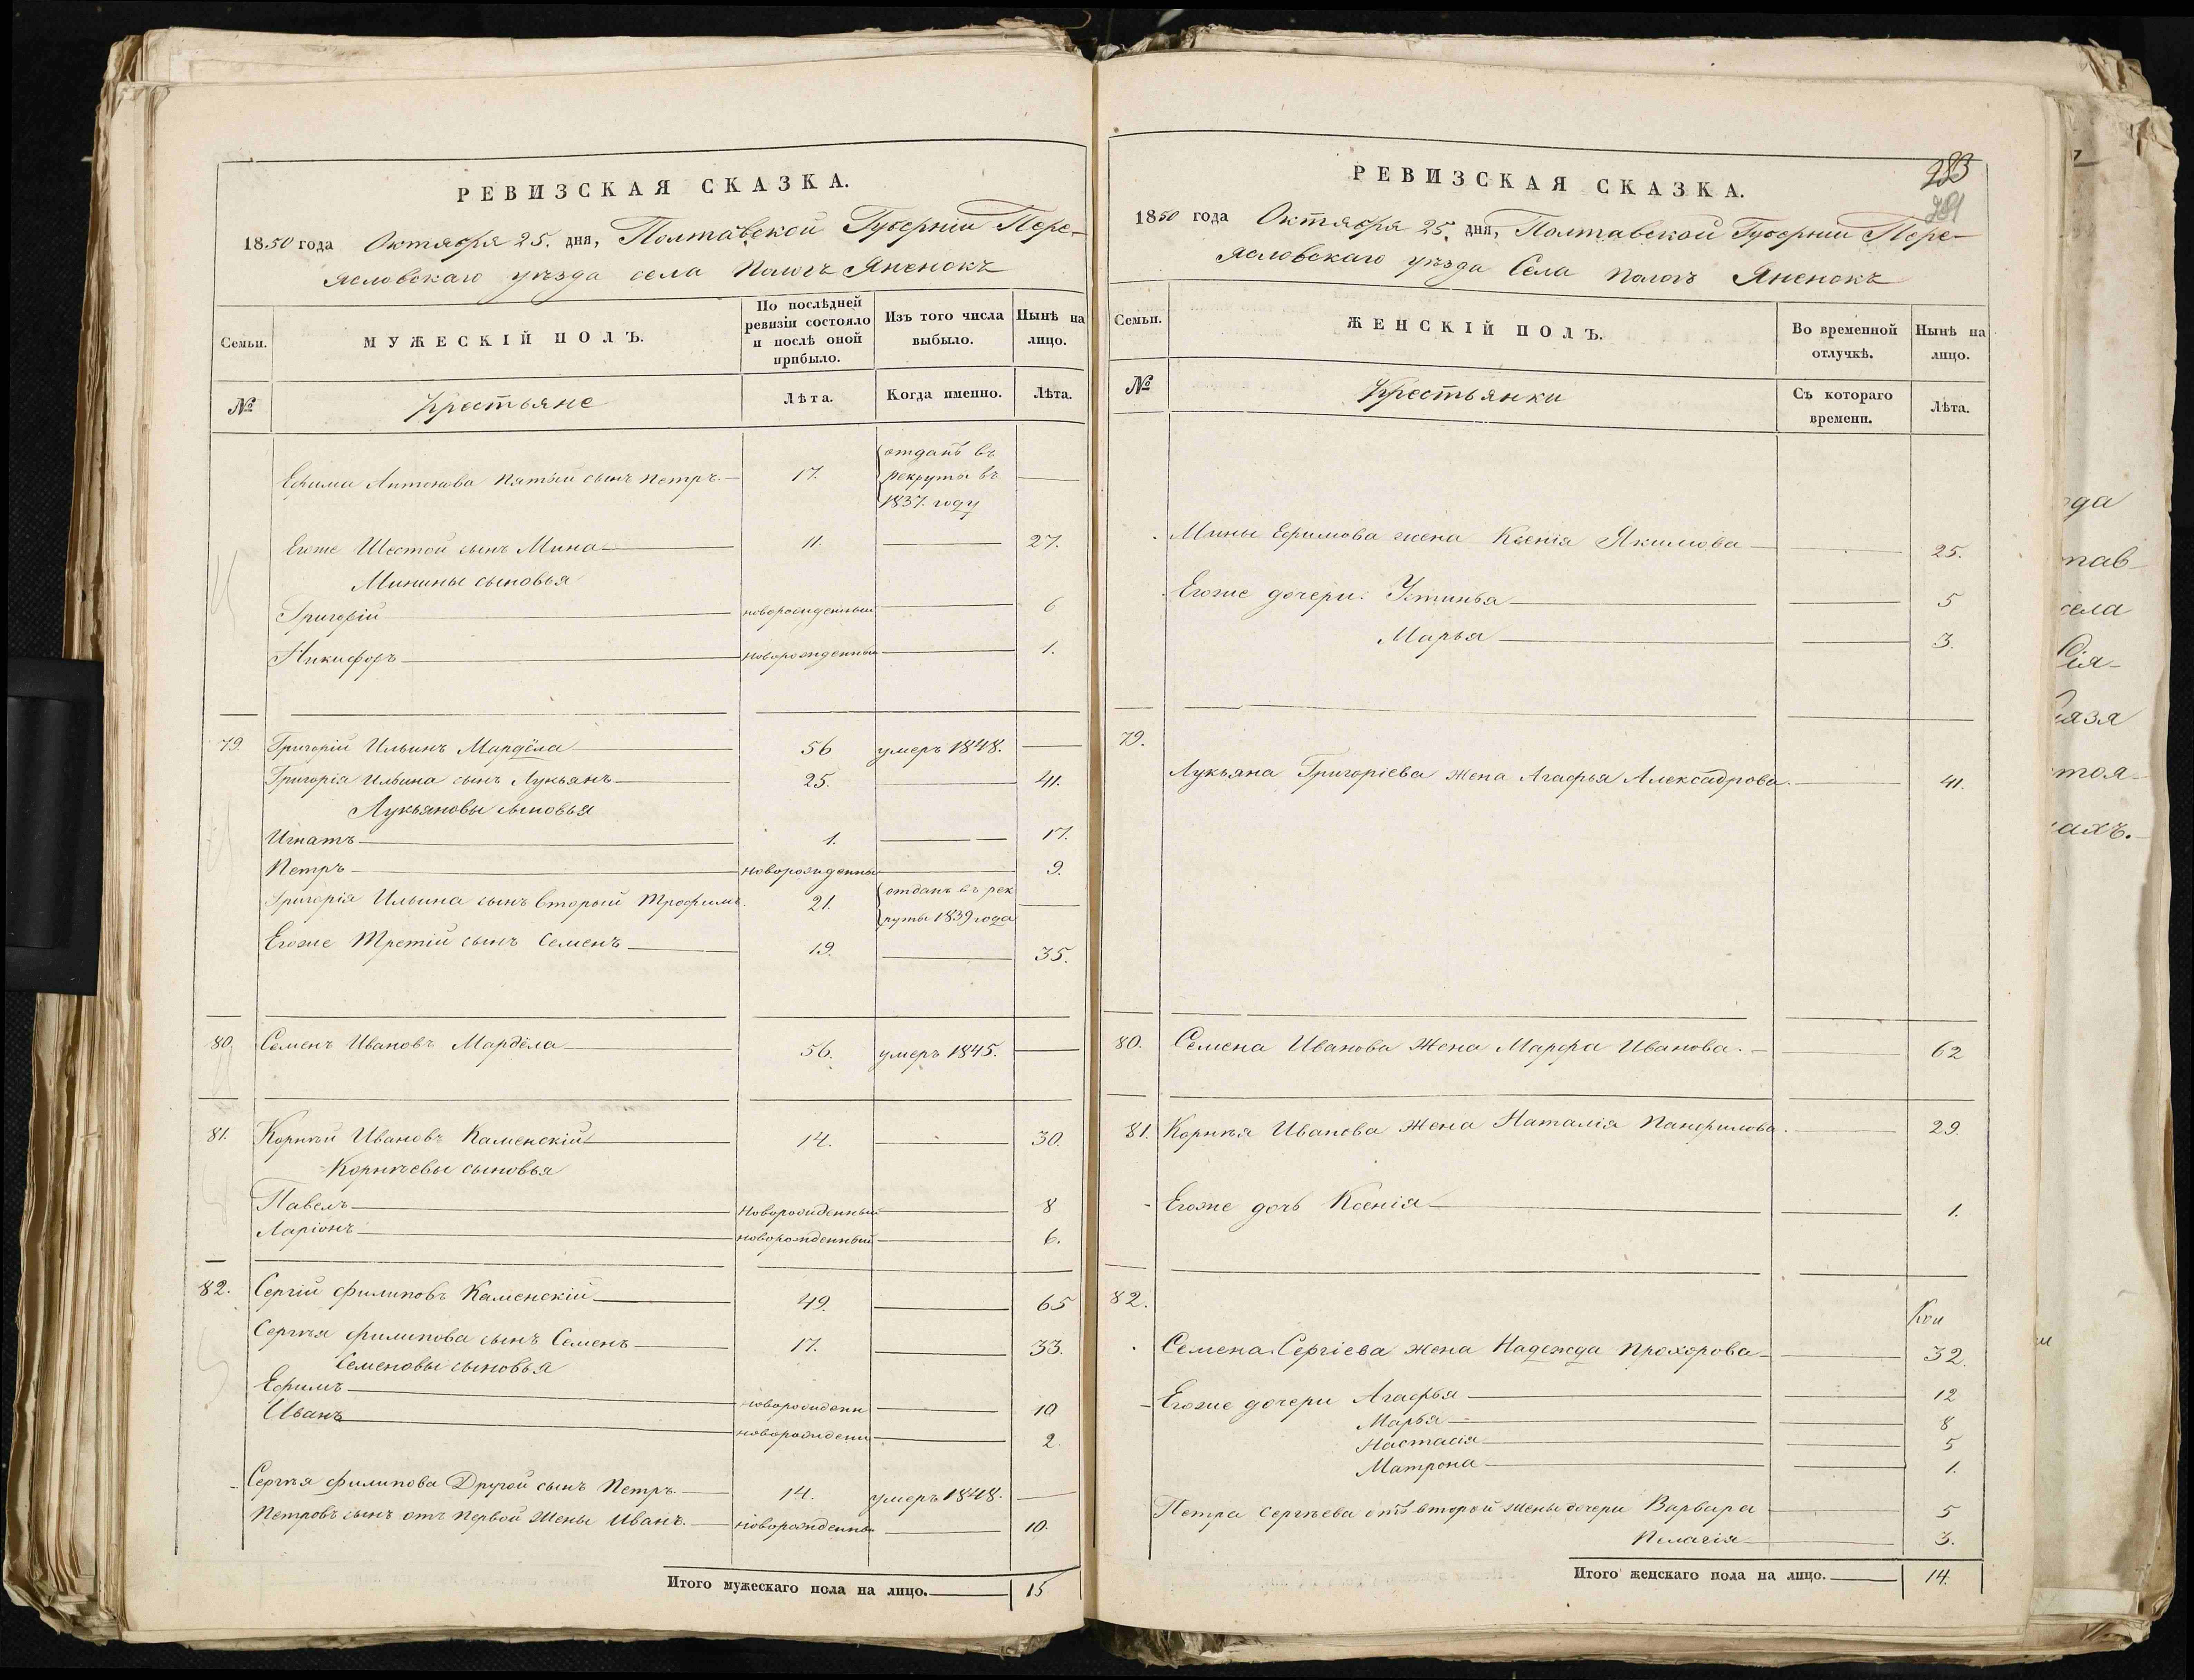 РЕВИЗСКАЯ СКАЗКА.
1850 года Октября 25. дня, Полтавской Губерніи Пере-
яславскаго уѣзда села Пологъ Яненокъ
Семьи. МУЖЕСКІЙ ПОЛЪ. По послѣдней ревизіи состояло и послѣ оной прибыло. Изъ того числа выбыло. Нынѣ на лицо.
№ Крестьяне Лѣта. Когда именно. Лѣта.
Ефима Антонова пятый сынъ Петръ 17. отданъ въ рекруты въ 1837. году
Егоже Шестой сынъ Мина 11. 27.
Минины сыновья
Григорій новорожденный 6
Никифоръ новорожденный 1.
79. Григорій Ильинъ Мардѣла 56 умеръ 1848.
Григорія Ильина сынъ Лукьянъ 25. 41.
Лукьяновы сыновья
Игнатъ 1. 17.
Петръ новорожденны 9.
Григорія Ильина сынъ второй Трофимъ. 21. отданъ въ рек
руты 1839 года
Егоже Третій сынъ Семенъ 19. 35.
80. Семенъ Ивановъ Мардѣла 56. умеръ 1845.
81. Корнѣй Ивановъ Каменскій 14. 30.
Корнѣевы сыновья
Павелъ Новорожденный 8
Ларіонъ новорожденный 6.
82. Сергій Филиповъ Каменскій 49. 65
Сергѣя Филипова сынъ Семенъ 17. 33.
Семеновы сыновья
Ефимъ новорожденн 10
Иванъ новорожденн 2.
Сергѣя Филипова Другой сынъ Петръ. 14. умеръ 1848.
Петровъ сынъ отъ первой жены Иванъ. новорожденны 10.
Итого мужескаго пола на лицо. 15
РЕВИЗСКАЯ СКАЗКА.
283
281
1850 года Октября 25. дня, Полтавской Губерніи Пере-
яславскаго уѣзда Села Пологъ Яненокъ
Семьи. ЖЕНСКІЙ ПОЛЪ. Во временной отлучкѣ. Нынѣ на лицо.
№ Крестьянки Съ котораго времени. Лѣта.
Мины Ефимова жена Ксенія Якимова 25.
Егоже дочери: Устинья 5
Марья 3.
79.
Лукьяна Григоріева жена Агафья Алексадрова. 41.
80. Семена Иванова Жена Марфа Иванова. 62
81. Корнѣя Иванова Жена Наталія Панфилова. 29.
Егоже дочь Ксенія 1.
82.
Семена Сергіева жена Надежда Прохорова 32.
Егоже дочери Агафья 12
Марья 8
Настасія 5
Матрона 1.
Петра Сергѣева отъ второй жены дочери Варвара 5
Пелагія 3.
Итого женскаго пола на лицо. 14.